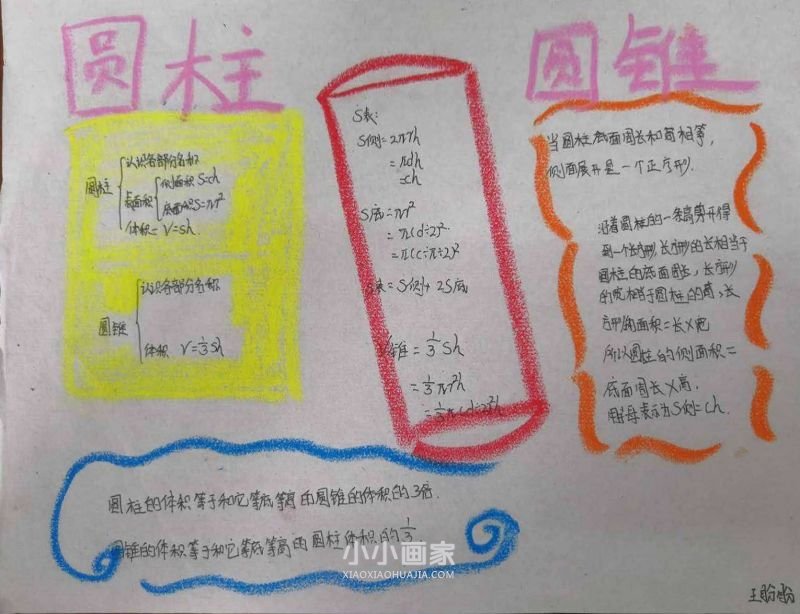 圆柱
圆锥
圆柱
认识各部分名称
表面积
侧面积 S=ch
底面积S=πr²
体积 — V=sh
圆锥
认识各部分名称
体积 V=⅓Sh
S表:
S侧=2πrh
=πdh
=ch
S底=πr²
=π(d÷2)²
=π(c÷π÷2)²
S表=S侧+2S底
V锥=⅓Sh
=⅓πr²h
=⅓π(d÷2)²h
当圆柱底面周长和高相等,
侧面展开是一个正方形.
沿着圆柱的一条高剪开得
到一个长方形,长方形的长相当于
圆柱的底面周长,长方形
的宽相当于圆柱的高,长
方形的面积=长×宽
所以圆柱的侧面积=
底面周长×高.
用字母表示为S侧=Ch.
圆柱的体积等于和它等底等高的圆锥的体积的3倍.
圆锥的体积等于和它等底等高的圆柱体积的⅓
小小画家
XIAOXIAOHUAJIA.COM
王盼盼